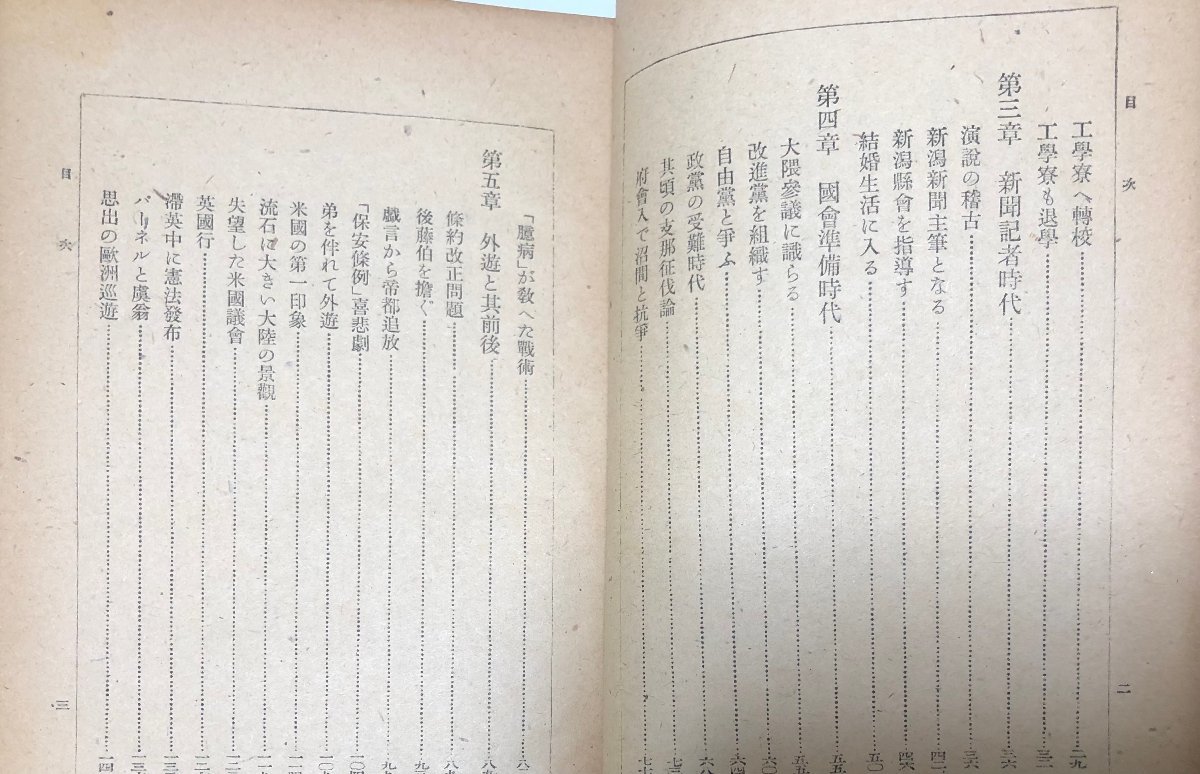 目次
二
工學寮へ轉校
工學寮も退學
第三章 新聞記者時代
演説の稽古
新潟新聞主筆となる
新潟縣會を指導す
結婚生活に入る
第四章 國會準備時代
大隈參議に識らる
改進黨を組織す
自由黨と爭ふ
政黨の受難時代
其頃の支那征伐論
府會入で沼間と抗爭
「臆病」が敎へた戰術
第五章 外遊と其前後
條約改正問題
後藤伯を擔ぐ
戲言から帝都追放
「保安條例」喜悲劇
弟を伴れて外遊
米國の第一印象
流石に大きい大陸の景觀
失望した米國議會
英國行
滯英中に憲法發布
パーネルと虞翁
思出の歐洲巡遊
目次
三